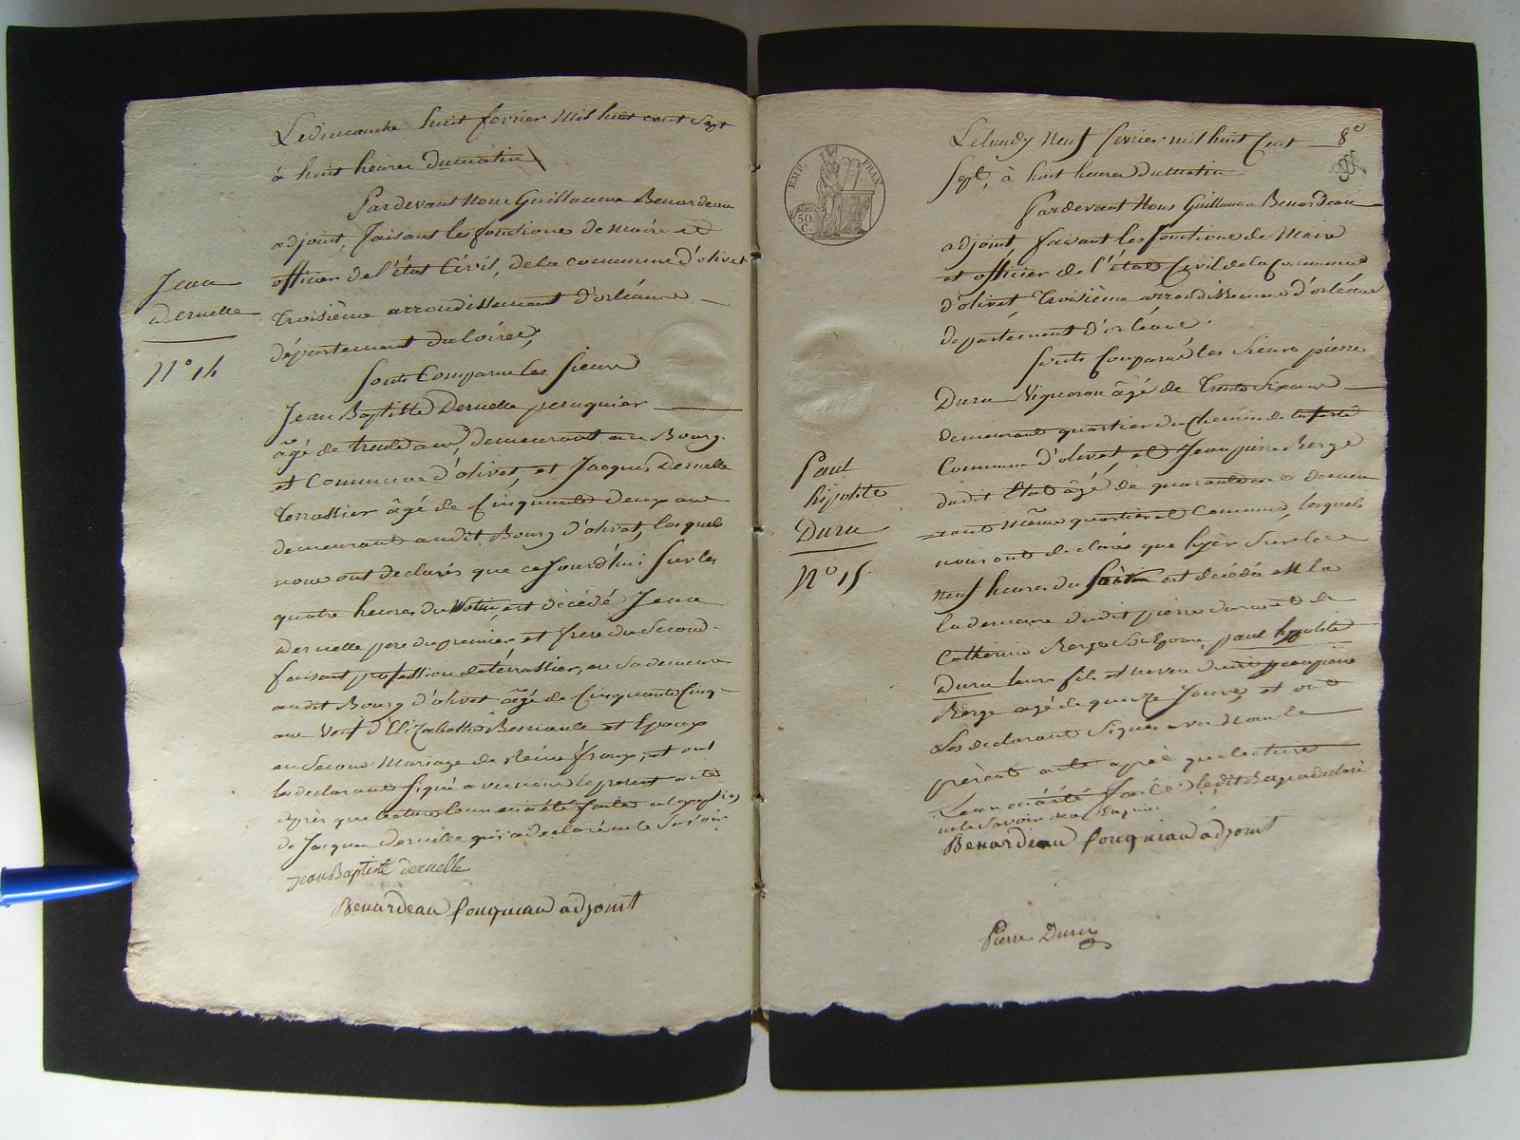 Le dimanche huit fevrier mil huit cent sept
à huit heures du matin
Pardevant Nous Guillaume Benardeau
adjoint, faisant les fonctions de maire et
officier de l'état Civil, de la commune d'olivet
troisième arrondissement d'orléans
département du loiret,
Sonts Comparu les Sieurs
Jean Baptiste Deruelle peruquier
âgé de trente ans, demeurant au Bourg
et Commune d'olivet, et Jacques Deruelle
terrassier âgé de Cinquante deux ans
demeurant audit Bourg d'olivet, lesquels
nous ont declarés que cejourd'hui Sur les
quatre heures du Matin, est décédé Jean
Deruelle pere du premier et frere du Second
faisant profession de térrassier, en sa demeure
audit Bourg d'olivet âgé de Cinquante Cinq
ans Veuf d'Elizabeth et Epoux
en Second Mariage de Reine ; et ont
les declarants Signé avec nous le present acte
après que lecture leur en a été faite a l'exception
de Jacques deruelle qui a declaré ne le Savoir
jean Baptiste deruelle
Benardeau fouqueau adjoint
Jean
Deruelle
N° 14
8e
Le lundy Neuf fevrier mil huit Cent
Sept, à huit heures Du matin
EMP. FRAN.
50 C.
Pardevant Nous Guillaume Benardeau
adjoint, faisant les fonctions de Maire
et officier de l'état Civil de la Commune
d'olivet troisième arrondissement d'orléans
departement d'orléans.
Sonts Comparu les Sieurs pierre
Duru Vigneron âgé de trente Six ans
demeurant quartier du Chemin de la ferté
Commune d'olivet, et Jean pierre Berge
dudit Etat âgé de quarante ans demeu
rant même quartier et Commune, lesquels
nous onts declarés que hyèr Sur les
neuf heures du est décédé en la
la demeure dudit pierre duru et de
Catherine Berge Son Epouse, paul hypolite
Duru leurs fils et neveu dudit jean pierre
Berge agé de quinze Jours, et ont
Les declarants Signés avec Nous le
présents acte après que lecture
Leur en a été faite ledit Berge a declaré
ne le Savoir
Benardeau fouqueau adjoint
Pierre Duru
Paul
hipolite
Duru
N° 15